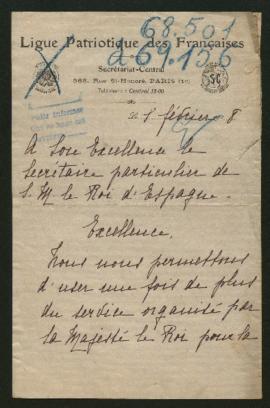 68.501
269.156
Ligue Patriotique des Françaises
Secrétariat-Central
368, Rue St-Honoré, PARIS (1er)
Téléphone : Central 18-00
le 1 février 8
A Son Excellence le
Secrétaire particulier de
S. M. le Roi d'Espagne.
Excellence,
Nous nous permettons
d'user une fois de plus
du service organisé par
sa Majesté le Roi pour la